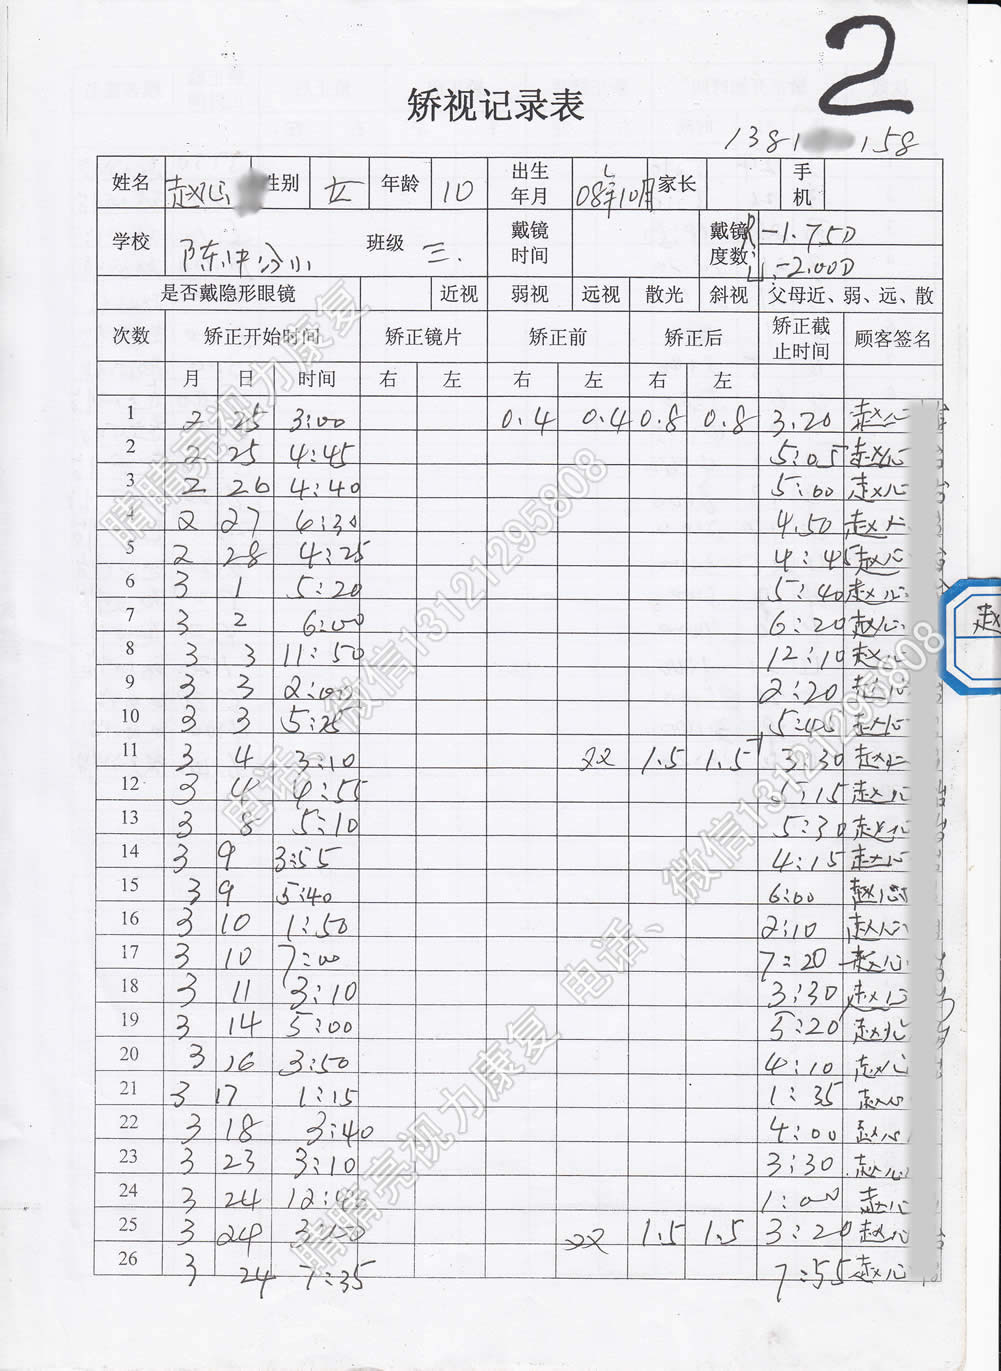 2
矫视记录表
1381 158
姓名 赵心 性别 女 年龄 10 出生年月 08年10月 家长 手机
学校 陈中分小 班级 三. 戴镜时间 戴镜度数 R -1.75D
L: -2.00D
是否戴隐形眼镜 近视 弱视 远视 散光 斜视 父母近、弱、远、散
次数 矫正开始时间 矫正镜片 矫正前 矫正后 矫正截止时间 顾客签名
月 日 时间 右 左 右 左 右 左
1 2 25 3:00 0.4 0.4 0.8 0.8 3.20 赵心
2 2 25 4:45 5:05 赵心
3 2 26 4:40 5:00 赵心
4 2 27 6:30 4.50 赵
5 2 28 4:25 4:45 赵心
6 3 1 5:20 5:40 赵心
7 3 2 6:00 6:20 赵心
8 3 3 11:50 12:10 赵心
9 3 3 2:00 2:20 赵心
10 3 3 5:25 5:45 赵心
11 3 4 3:10 双 1.5 1.5 3:30 赵心
12 3 4 4:55 5:15 赵心
13 3 8 5:10 5:30 赵心
14 3 9 3:55 4:15 赵心
15 3 9 5:40 6:00 赵心
16 3 10 1:50 2:10 赵心
17 3 10 7:00 7:20 赵心
18 3 11 3:10 3:30 赵心
19 3 14 5:00 5:20 赵心
20 3 16 3:50 4:10 赵心
21 3 17 1:15 1:35 赵心
22 3 18 3:40 4:00 赵心
23 3 23 3:10 3:30 赵心
24 3 24 12:40 1:00 赵心
25 3 24 3:00 双 1.5 1.5 3:20 赵心
26 3 24 7:35 7:55 赵心
赵
睛睛亮视力康复 电话、微信13121295808
睛睛亮视力康复 电话、微信13121295808